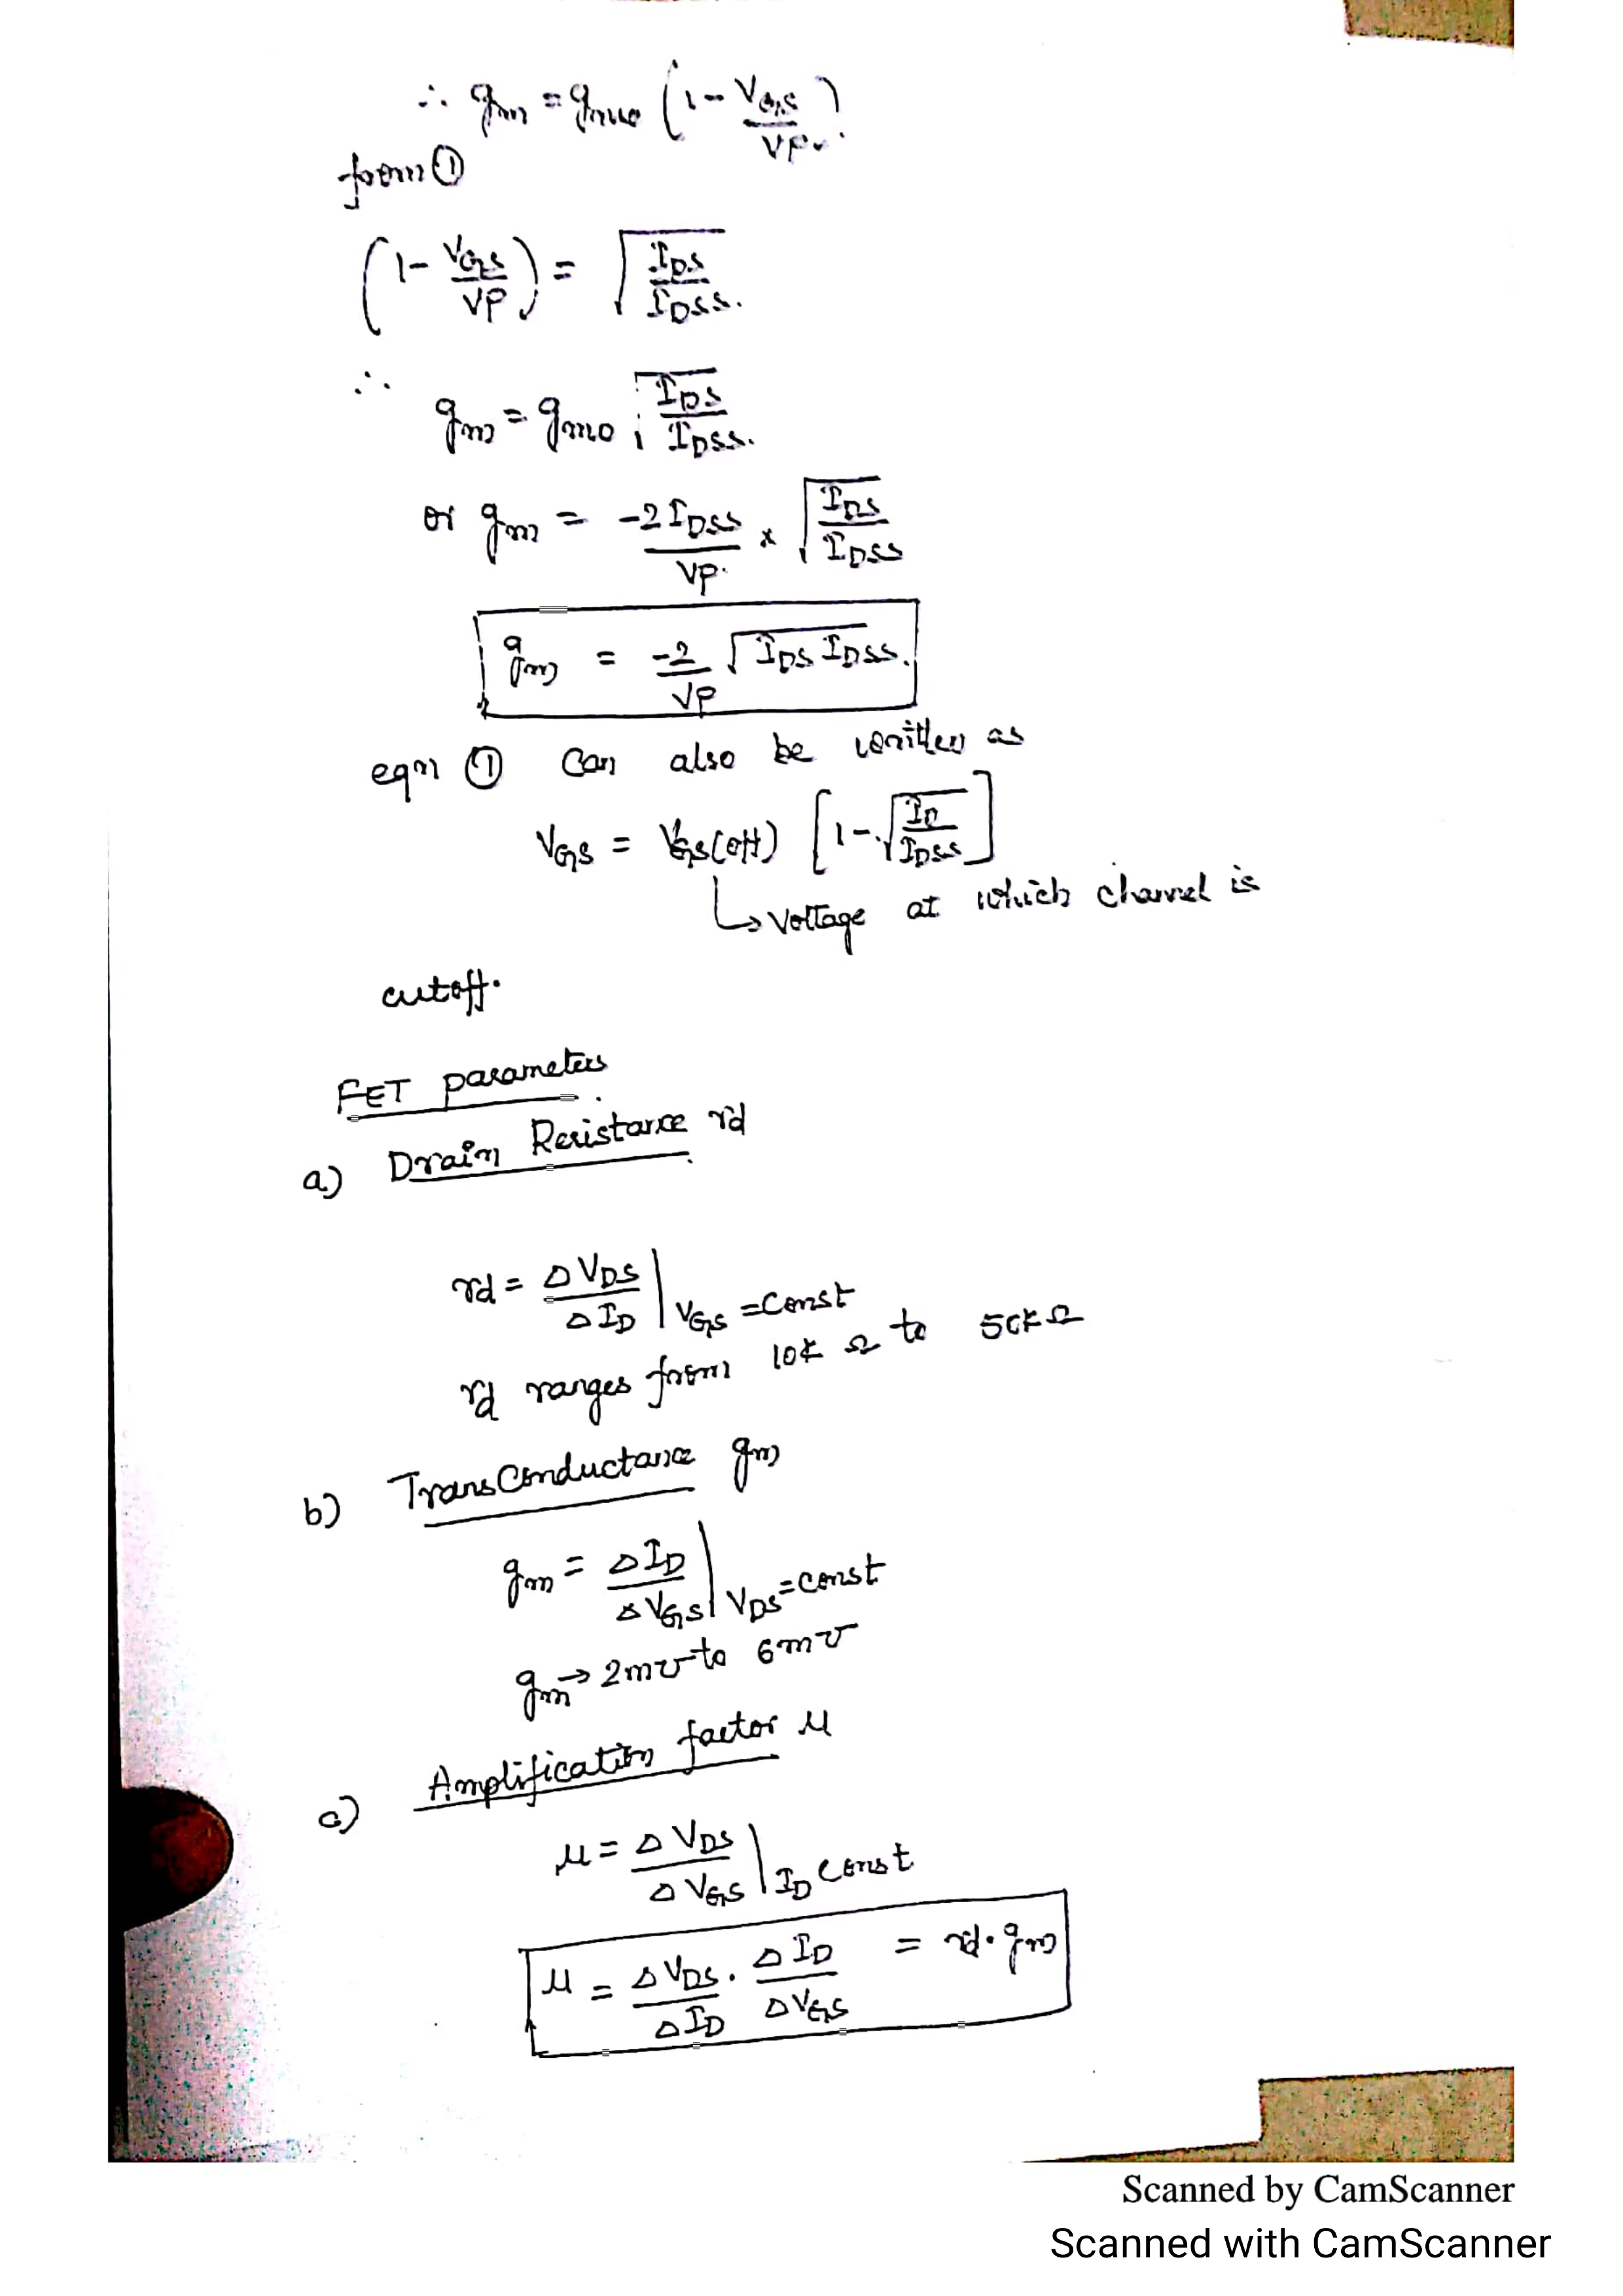 ∴ gm = gmo (1 - VGS/VP)
from ①
(1 - VGS/VP) = √(IDS/IDSS.)
∴ gm = gmo √(IDS/IDSS.)
or gm = -2IDSS/VP. × √(IDS/IDSS)
gm = -2/VP √(IDS IDSS.)
eqn ① can also be written as
VGS = VGS(off) [1 - √(ID/IDSS)]
↳ Voltage at which channel is
cutoff.
FET parameters
a) Drain Resistance rd
rd = ΔVDS/ΔID | VGS = Const
rd ranges from 10K Ω to 50K Ω
b) TransConductance gm
gm = ΔID/ΔVGS | VDS = const
gm → 2m℧ to 6m℧
c) Amplification factor μ
μ = ΔVDS/ΔVGS | ID Const
μ = ΔVDS/ΔID · ΔID/ΔVGS = rd · gm
Scanned by CamScanner
Scanned with CamScanner